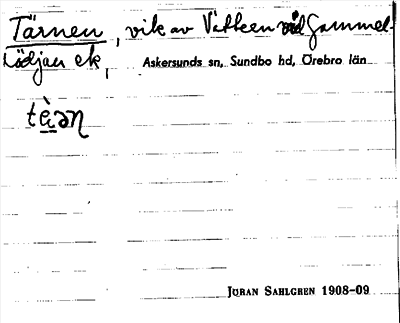 Tärnen, vik av Vättern vid Gammel-
ek, Askersunds sn, Sundbo hd, Örebro län
JÖRAN SAHLGREN 1908-09